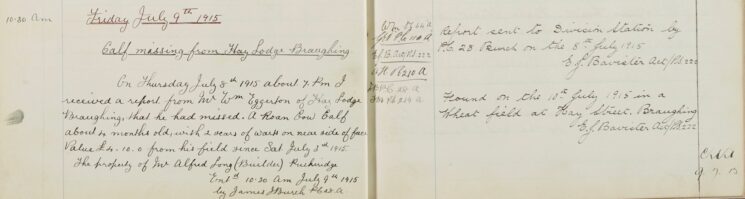 10.30 Am
Friday July 9th 1915
Calf missing from Hay Lodge Braughing
On Thursday July 8th 1915 about 7. Pm I
received a report from Mr Wm Eggerton of Hay Lodge
Braughing, that he had missed. A Roan Cow Calf
about 4 months old, with 2 scars of warts on near side of face
Value £4. 10. 0 from his field since Sat July 3rd 1915.
The property of Mr Alfred Long (Builder) Puckeridge
Entd 10.30 Am July 9th 1915
by James J Burch PC 28. A.
E.J.B. Act/P.S. 222
Report sent to Division Station by
P.C. 28 Burch on the 8th July 1915
E.J. Bavister Act/P.S. 222
Found on the 10th July 1915 in a
Wheat field at Hay Street, Braughing
E.J. Bavister Act/P.S. 222
9. 7. 15